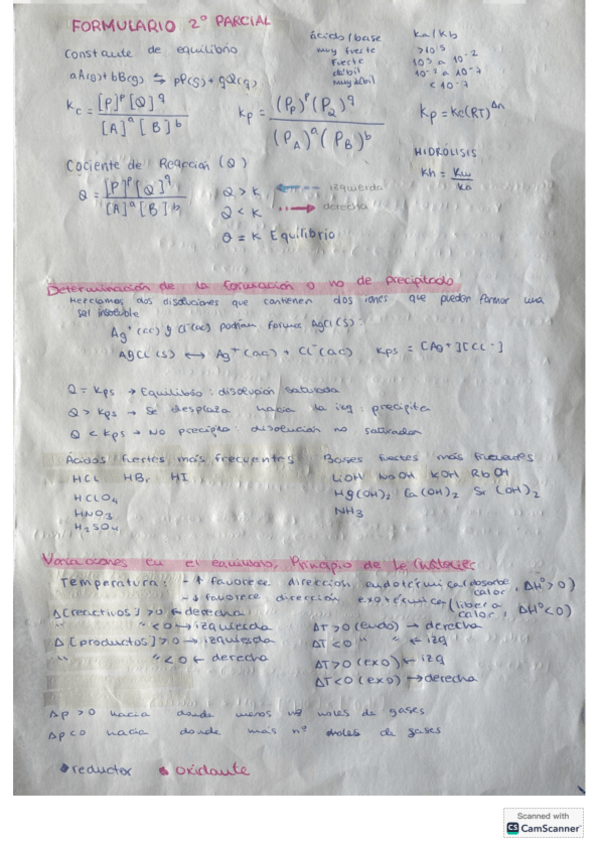 FORMULARIO 2º PARCIAL
Constante de equilibrio
aA(g) + bB(g) ⇆ pP(g) + qQ(g)
Kc = [P]^p [Q]^q / [A]^a [B]^b
Kp = (P_P)^p (P_Q)^q / (P_A)^a (P_B)^b
ácido/base Ka/Kb
muy fuerte >10^5
Fuerte 10^5 a 10^-2
débil 10^-2 a 10^-7
muy débil < 10^-7
Kp = Kc(RT)^Δn
HIDRÓLISIS
Kh = Kw / Ka
Cociente de Reacción (Q)
Q = [P]^p [Q]^q / [A]^a [B]^b
Q > K ← izquierda
Q < K → derecha
Q = K Equilibrio
Determinación de la formación o no de precipitado
Mezclamos dos disoluciones que contienen dos iones que pueden formar una
sal insoluble
Ag+ (ac) y Cl-(ac) podrían formar AgCl(s):
AgCl(s) ↔ Ag+ (ac) + Cl-(ac) Kps = [Ag+][Cl-]
Q = Kps → Equilibrio: disolución saturada
Q > Kps → Se desplaza hacia la izq: precipita
Q < Kps → No precipita: disolución no saturada
Ácidos fuertes más frecuentes
HCl HBr HI
HClO4
HNO3
H2SO4
Bases fuertes más frecuentes
LiOH NaOH KOH RbOH
Mg(OH)2 Ca(OH)2 Sr(OH)2
NH3
Variaciones en el equilibrio, Principio de Le Chatelier
Temperatura: - ↑ favorece dirección endotérmica (absorbe calor, ΔH°>0)
- ↓ favorece dirección exotérmica (libera calor, ΔH°<0)
Δ[reactivos] >0 ← derecha
" " <0 → izquierda
Δ[productos] >0 → izquierda
" " <0 ← derecha
ΔT>0 (endo) → derecha
ΔT<0 " " ← izq
ΔT>0 (exo) ← izq
ΔT<0 (exo) → derecha
Δp >0 hacia donde menos nº moles de gases
Δp <0 hacia donde más nº moles de gases
reductor oxidante
Scanned with
CS CamScanner